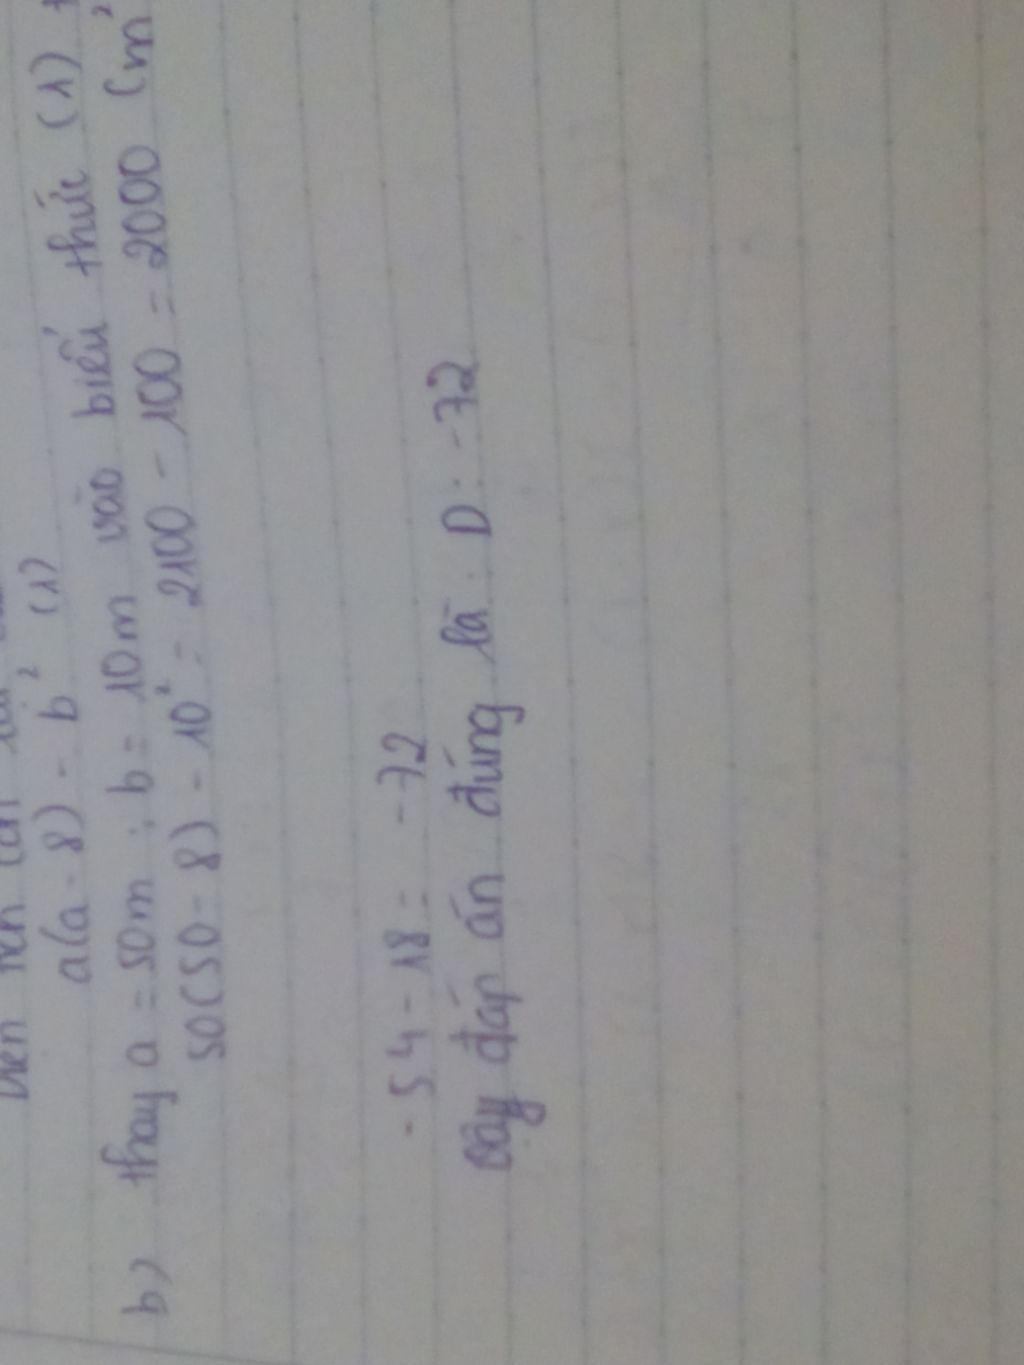 a(a - 8) - b² (1)
b) thay a = 50m ; b = 10m vào biểu thức (1)
50(50 - 8) - 10² = 2100 - 100 = 2000 (m²
- 54 - 18 = - 72
vậy đáp án đúng là : D : - 72